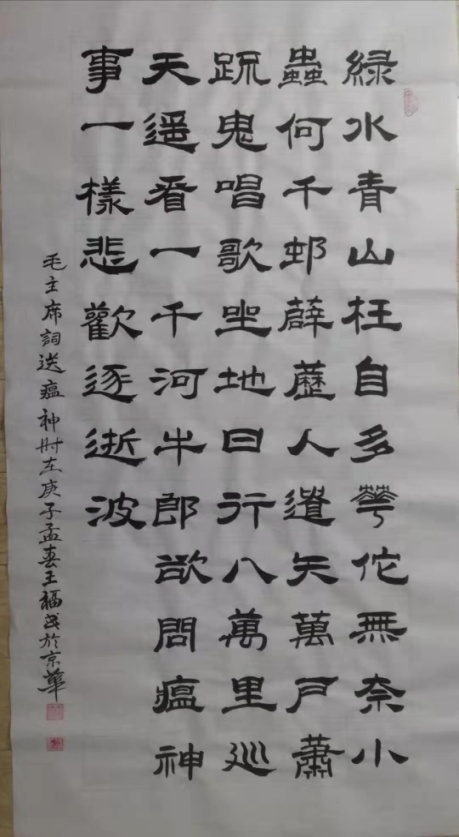 緑水青山枉自多華佗無奈小
蟲何千邨薜藶人遺矢萬戶蕭
疏鬼唱歌坐地日行八萬里巡
天遥看一千河牛郎欲問瘟神
事一樣悲歡逐逝波
毛主席詞送瘟神时在庚子孟春王福於京華